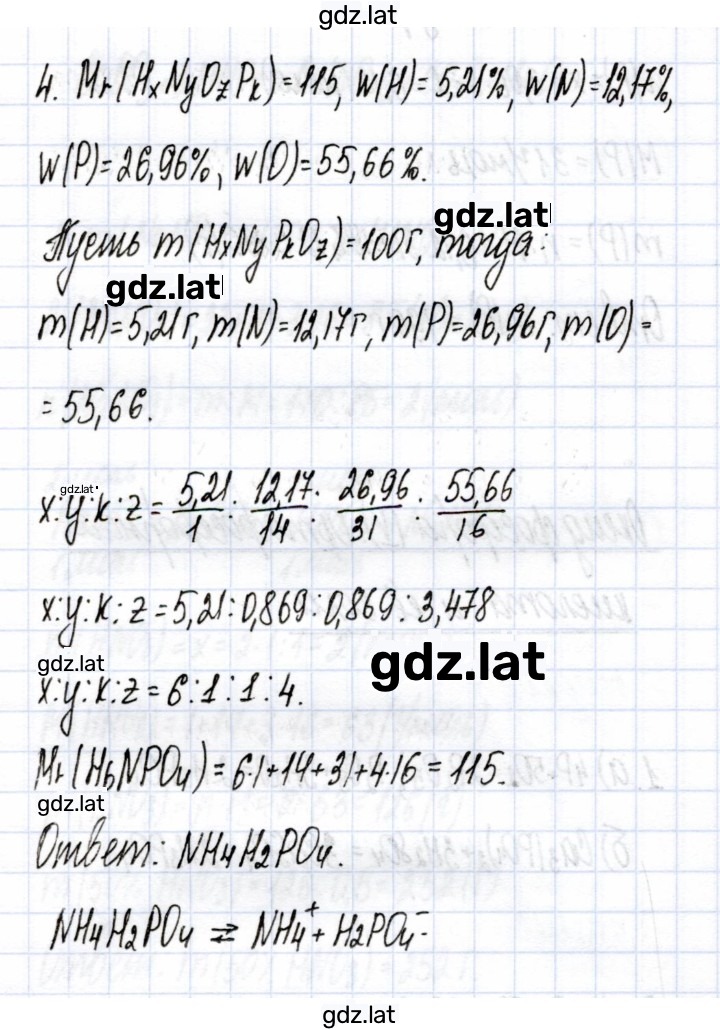 gdz.lat
4. Mr(HxNyOzPk)=115, w(H)=5,21%, w(N)=12,17%,
w(P)=26,96%, w(O)=55,66%.
gdz.lat
Пусть m(HxNyPkOz)=100г, тогда:
gdz.lat
m(H)=5,21г, m(N)=12,17г, m(P)=26,96г, m(O)=
=55,66.
gdz.lat
x:y:k:z = 5,21/1 : 12,17/14 : 26,96/31 : 55,66/16
x:y:k:z=5,21:0,869:0,869:3,478
gdz.lat
gdz.lat
x:y:k:z=6:1:1:4.
Mr(H6NPO4)=6·1+14+31+4·16=115.
gdz.lat
Ответ: NH4H2PO4.
NH4H2PO4 ⇄ NH4⁺ + H2PO4⁻
gdz.lat